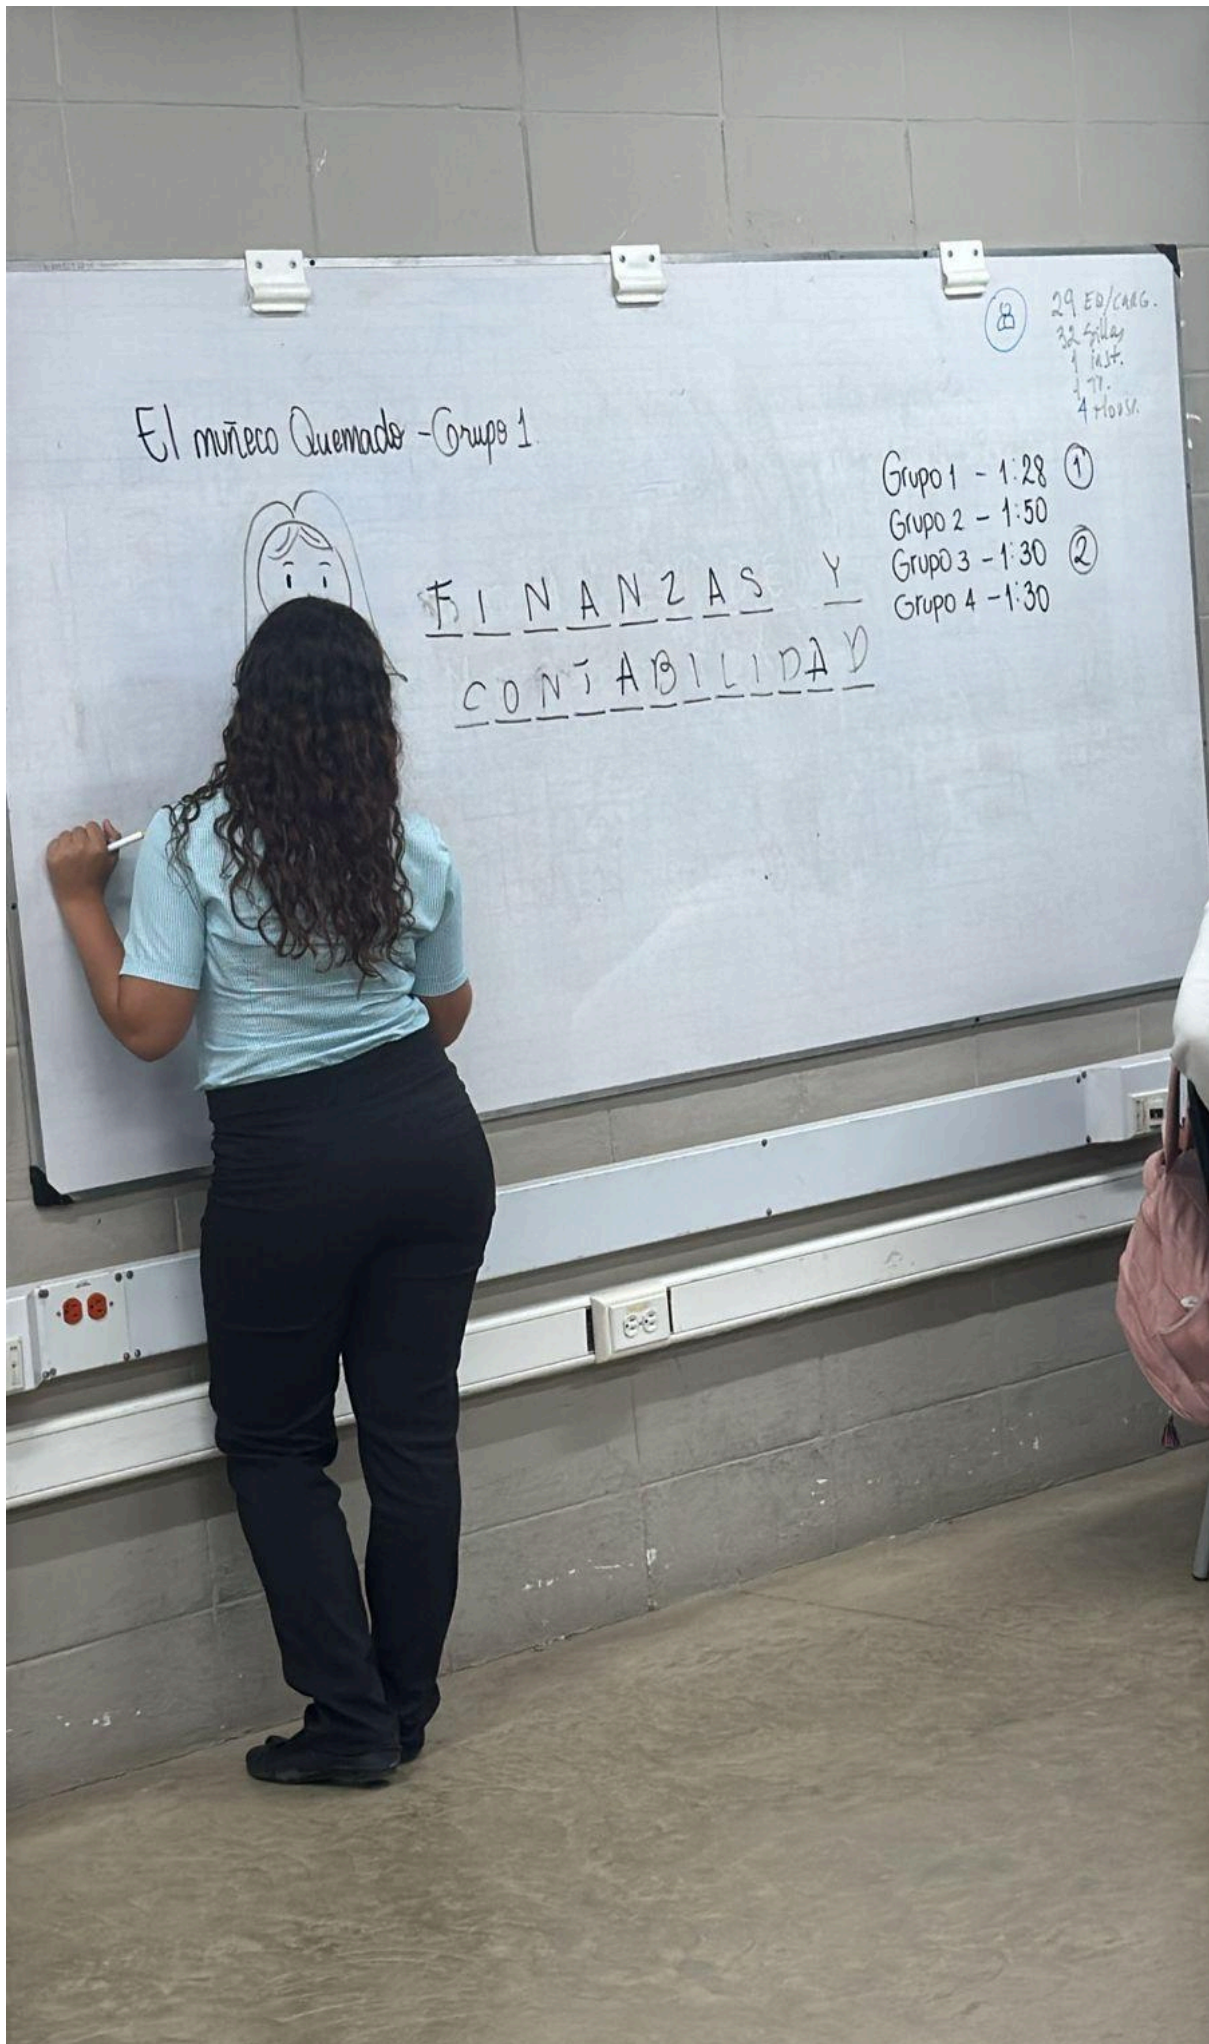 29 EQ/CARG.
32 Sillas
1 inst.
1 TV.
4 Mouse.
El muñeco Quemado - Grupo 1
Grupo 1 - 1:28 1
Grupo 2 - 1:50
Grupo 3 - 1:30 2
Grupo 4 - 1:30
FINANZAS Y
CONTABILIDAD